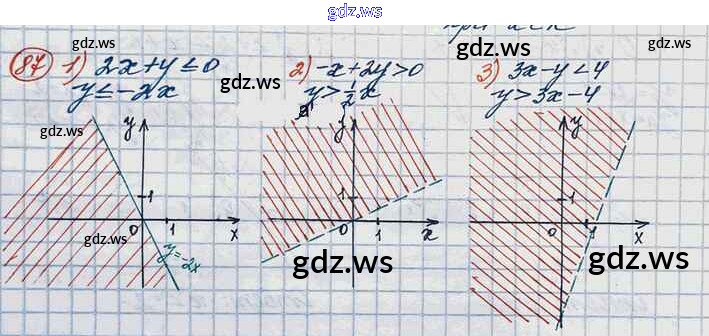 gdz.ws
gdz.ws gdz.ws
87 1) 2x+y≤0 2) -x+2y>0 3) 3x-y<4
y≤-2x y>½x y>3x-4
gdz.ws gdz.ws
y y y
1 1
gdz.ws 0 1 x 0 1 x 1
y=-2x gdz.ws gdz.ws